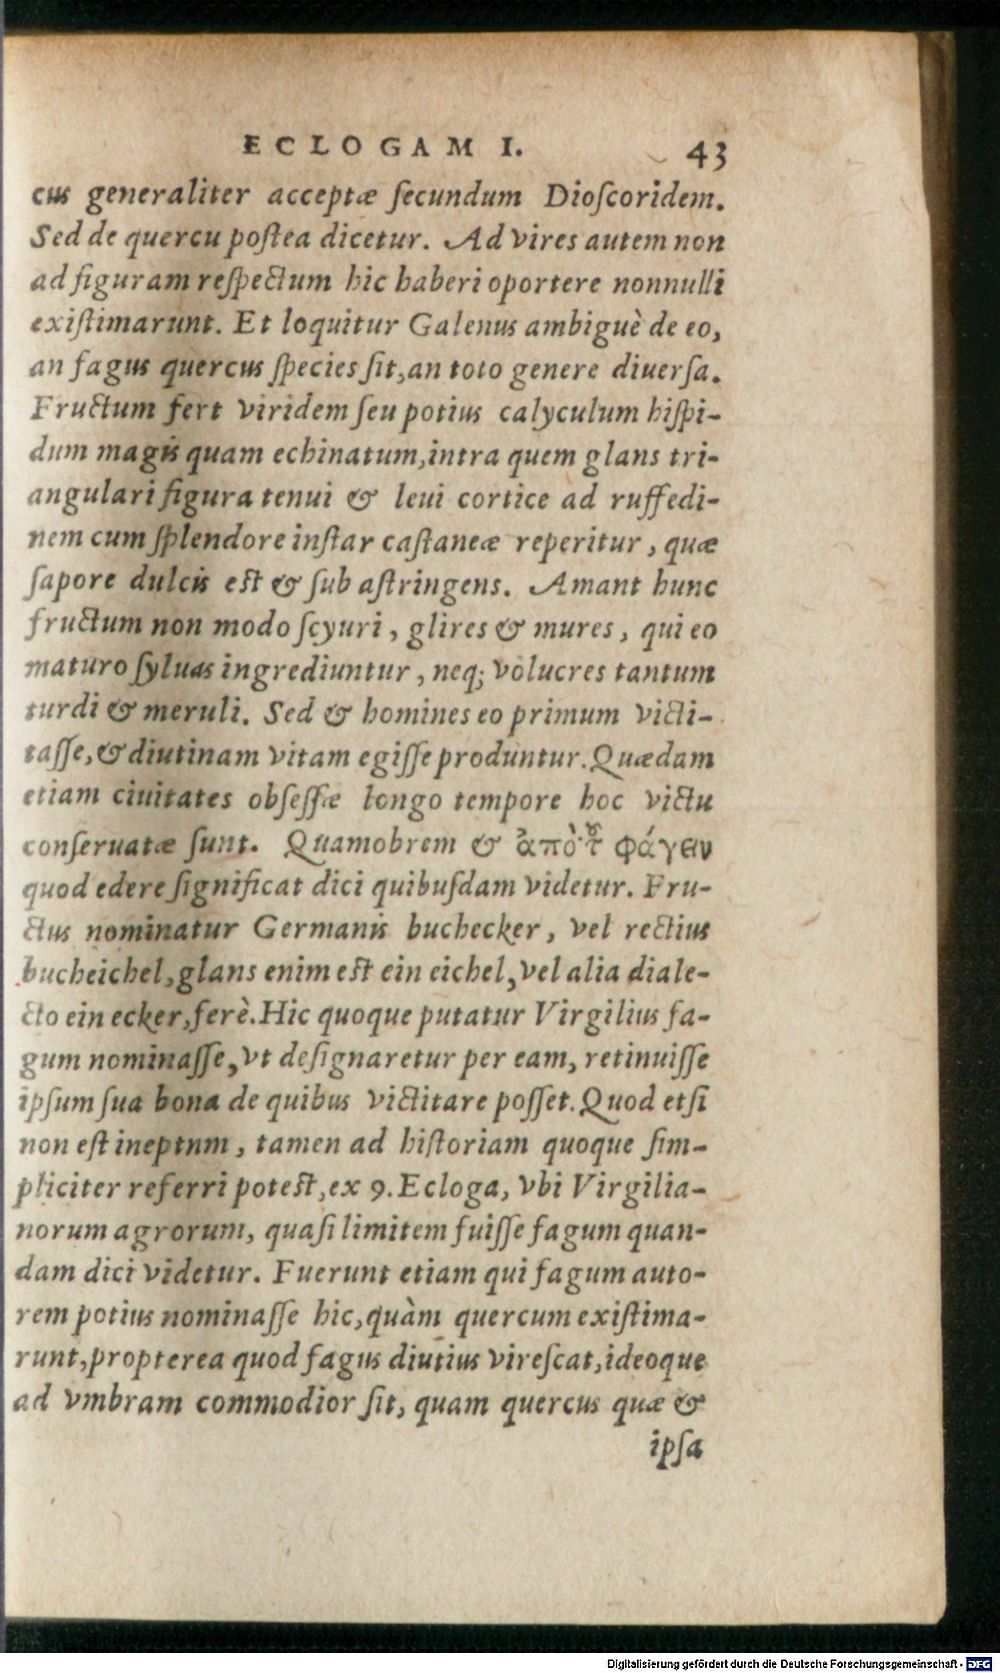 ECLOGAM I. 43
cus generaliter acceptæ ſecundum Dioſcoridem.
Sed de quercu poſtea dicetur. Ad vires autem non
ad figuram reſpectum hic haberi oportere nonnulli
exiſtimarunt. Et loquitur Galenus ambiguè de eo,
an fagus quercus ſpecies ſit, an toto genere diuerſa.
Fructum fert viridem ſeu potius calyculum hiſpi-
dum magis quam echinatum, intra quem glans tri-
angulari figura tenui & leui cortice ad ruffedi-
nem cum ſplendore inſtar caſtaneæ reperitur, quæ
ſapore dulcis eſt & ſub aſtringens. Amant hunc
fructum non modo ſcyuri, glires & mures, qui eo
maturo ſyluas ingrediuntur, neq; volucres tantum
turdi & meruli. Sed & homines eo primum victi-
taſſe, & diutinam vitam egiſſe produntur. Quædam
etiam ciuitates obſeſſæ longo tempore hoc victu
conſeruatæ ſunt. Quamobrem & ἀπὸ τοῦ φάγειν
quod edere ſignificat dici quibuſdam videtur. Fru-
ctus nominatur Germanis buchecker, vel rectius
bucheichel, glans enim eſt ein eichel, vel alia diale-
cto ein ecker, ferè. Hic quoque putatur Virgilius fa-
gum nominaſſe, vt deſignaretur per eam, retinuiſſe
ipſum ſua bona de quibus victitare poſſet. Quod etſi
non eſt ineptnm, tamen ad hiſtoriam quoque ſim-
pliciter referri poteſt, ex 9. Ecloga, vbi Virgilia-
norum agrorum, quaſi limitem fuiſſe fagum quan-
dam dici videtur. Fuerunt etiam qui fagum auto-
rem potius nominaſſe hic, quàm quercum exiſtima-
runt, propterea quod fagus diutius vireſcat, ideoque
ad vmbram commodior ſit, quam quercus quæ &
ipſa
Digitalisierung gefördert durch die Deutsche Forschungsgemeinschaft - DFG